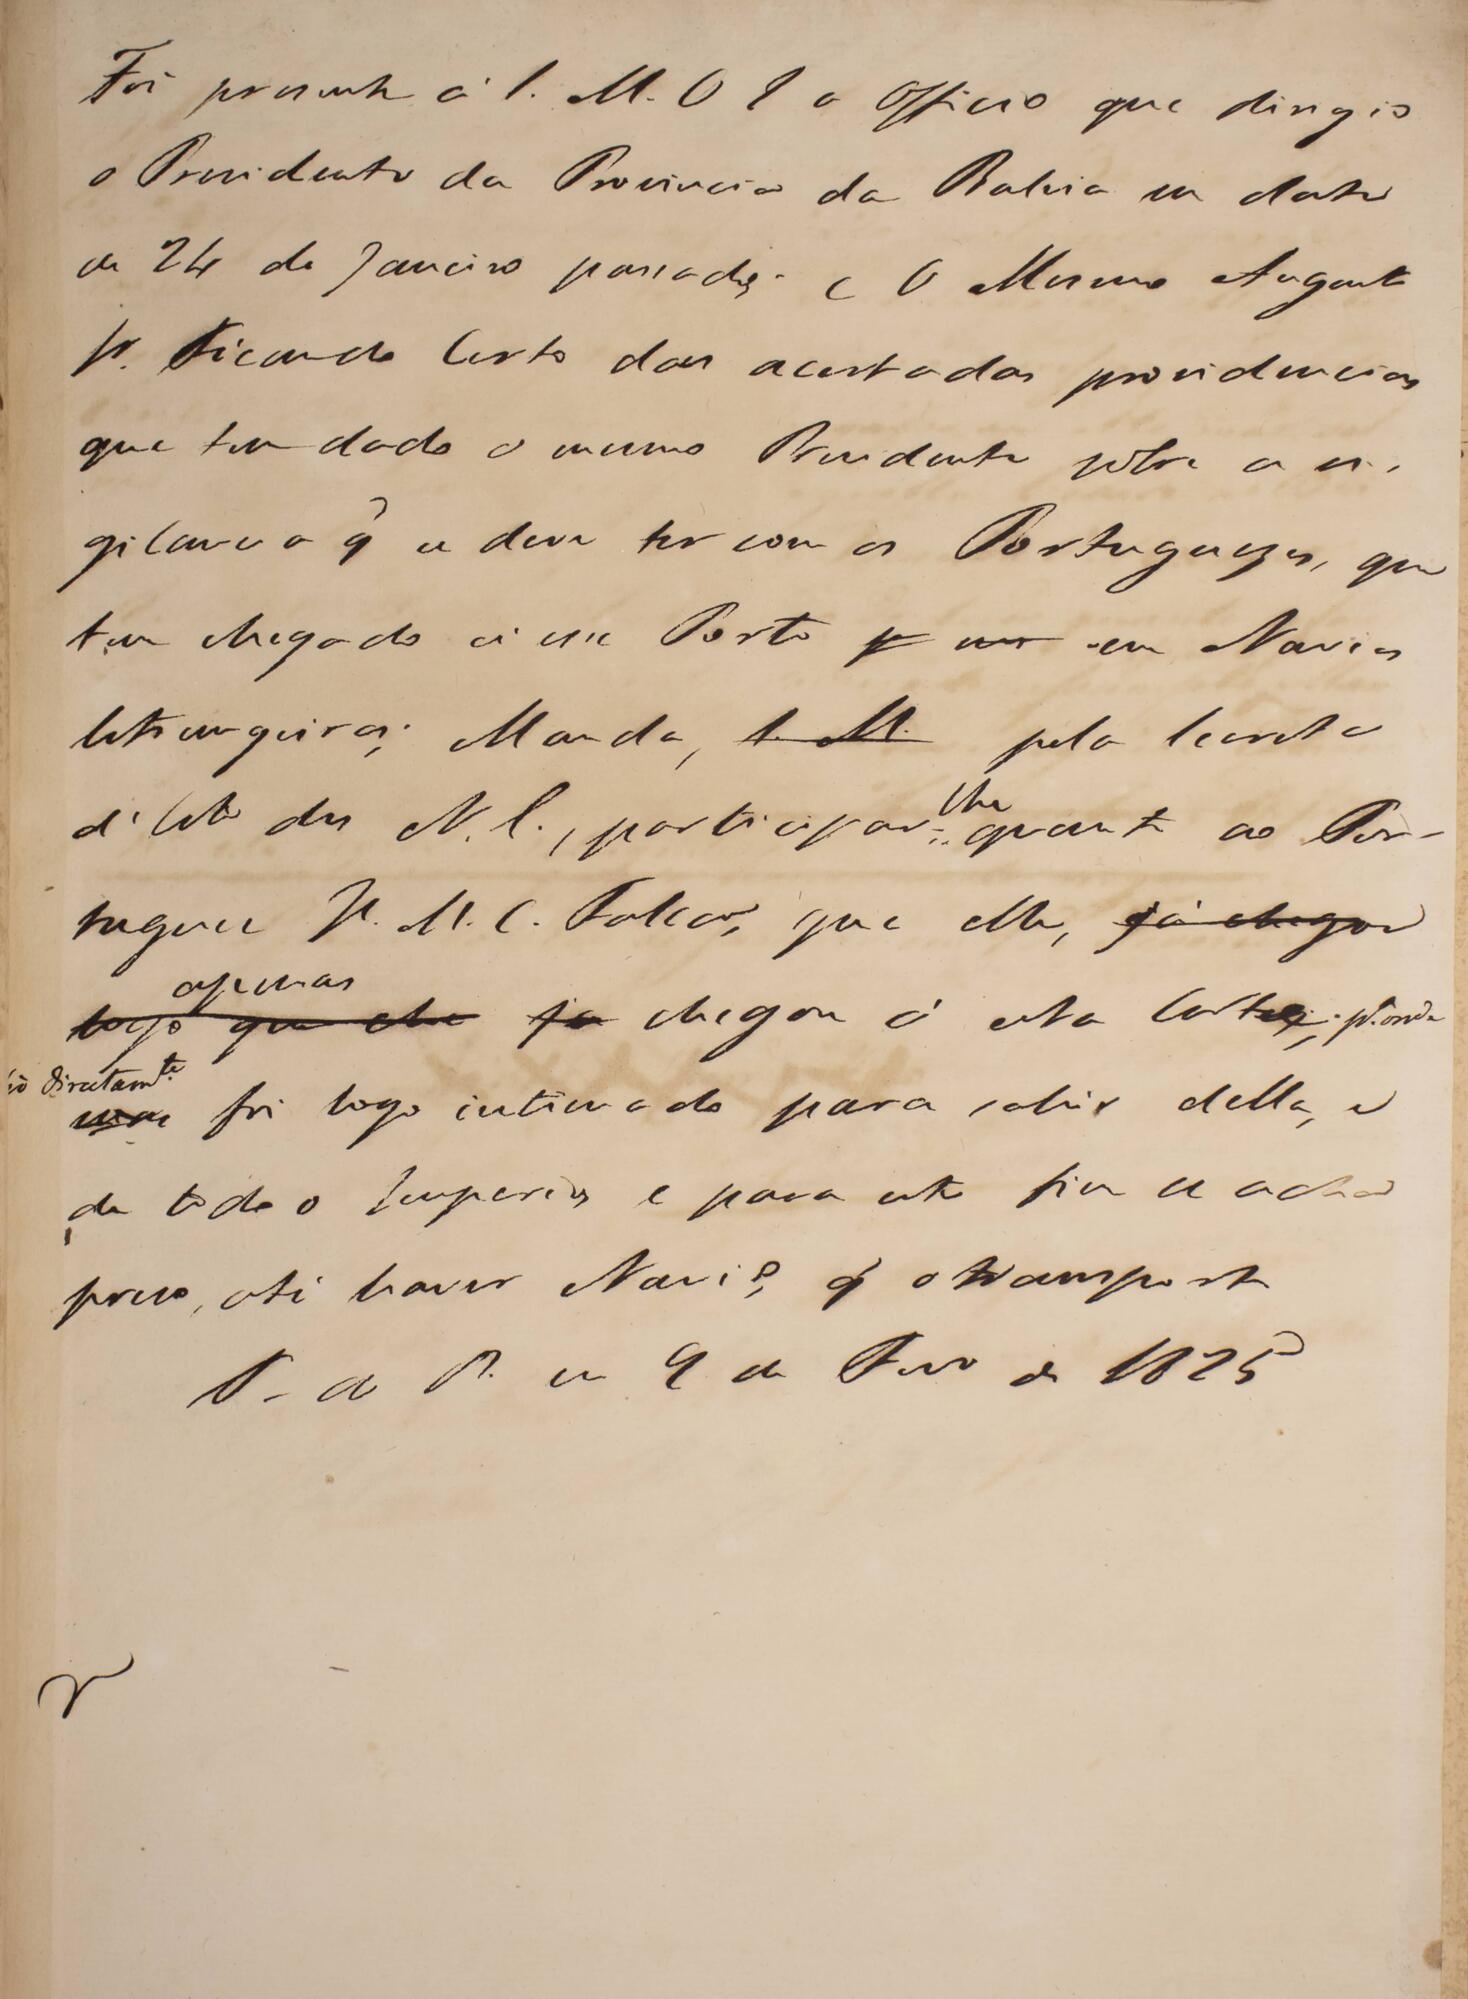 Foi presente á S. M. O I o Officio que dirigio
o Presidente da Provincia da Bahia em data
de 24 de Janeiro passado; e O Mesmo Augusto
Sr. Ficando Certo das acertadas providencias
que tem dado o mesmo Presidente sobre a vi-
gilancia q̃ se deve ter com os Portuguezes, que
tem chegado á esse Porto em Navios
Estrangeiros; Manda, S. M. pela Secreta
d'Esto dos N. E., participar-lhe quanto ao Por-
tuguez J. M. C. Falcão, que elle, já chegou
apenas
logo que elle já chegou á esta Corte, pª onde
directamte
foi logo intimado para sahir della, e
de todo o Imperio, e para este fim se acha
preso, até haver Navio, q̃ o transporte
P. do R. em 9 de Fevo de 1825